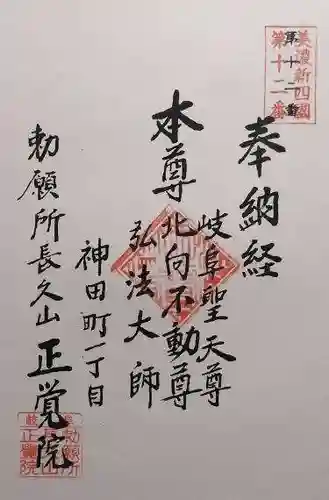 美濃新四國
第十二番
第十二番
奉納経
岐阜聖天尊
本尊北向不動尊
弘法大師
神田町一丁目
勅願所長久山正覚院